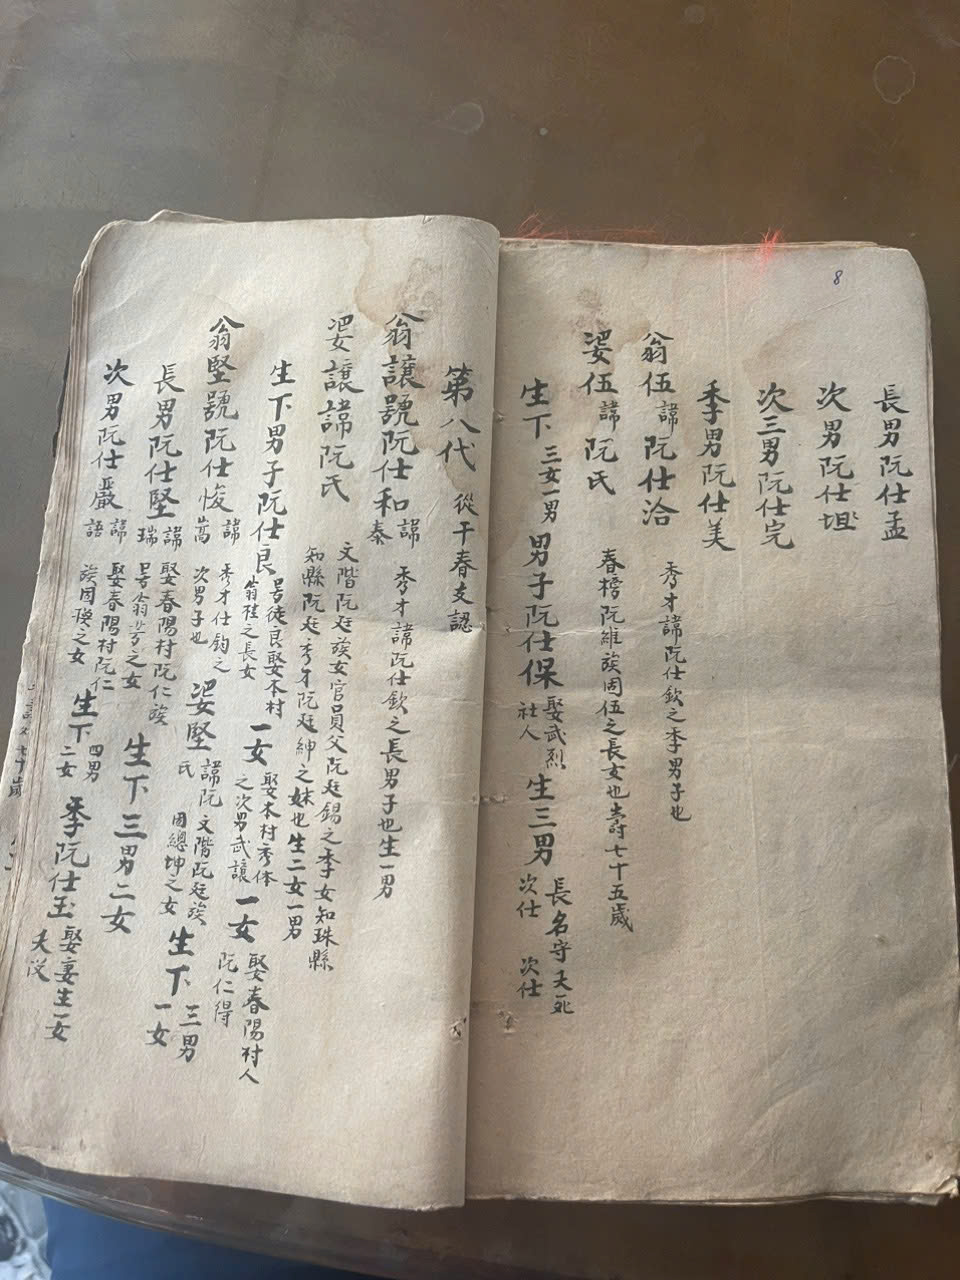 8
長男阮仕孟
次男阮仕坥
次三男阮仕完
季男阮仕美
翁伍諱阮仕洽 秀才諱阮仕欽之季男子也
婆伍諱阮氏 春榜阮維族固伍之長女也壽七十五歲
生下三女一男 男子阮仕保 娶武烈社人 生三男 長名守夭死 次仕 次仕
第八代 從干春支認
翁讓號阮仕和諱泰 秀才諱阮仕欽之長男子也生一男
婆讓諱阮氏 文階阮廷族女官員父阮廷錫之季女知珠縣知縣阮廷秀才阮廷紳之妹也生二女一男
生下男子阮仕良 号徒良娶本村翁桂之長女 一女 娶本村秀体之次男武讓 一女 娶春陽村人阮仁得
翁堅號阮仕悛諱嵩 秀才仕鈞之次男子也 婆堅諱阮氏 文階阮廷族固總坤之女 生下三男一女
長男阮仕堅諱瑞 娶春陽村阮仁族号翁之女 生下三男二女
次男阮仕嚴諱語 娶春陽村阮仁族固瑛之女 生下四男二女 季阮仕玉 娶妻生一女夭没
七十歲